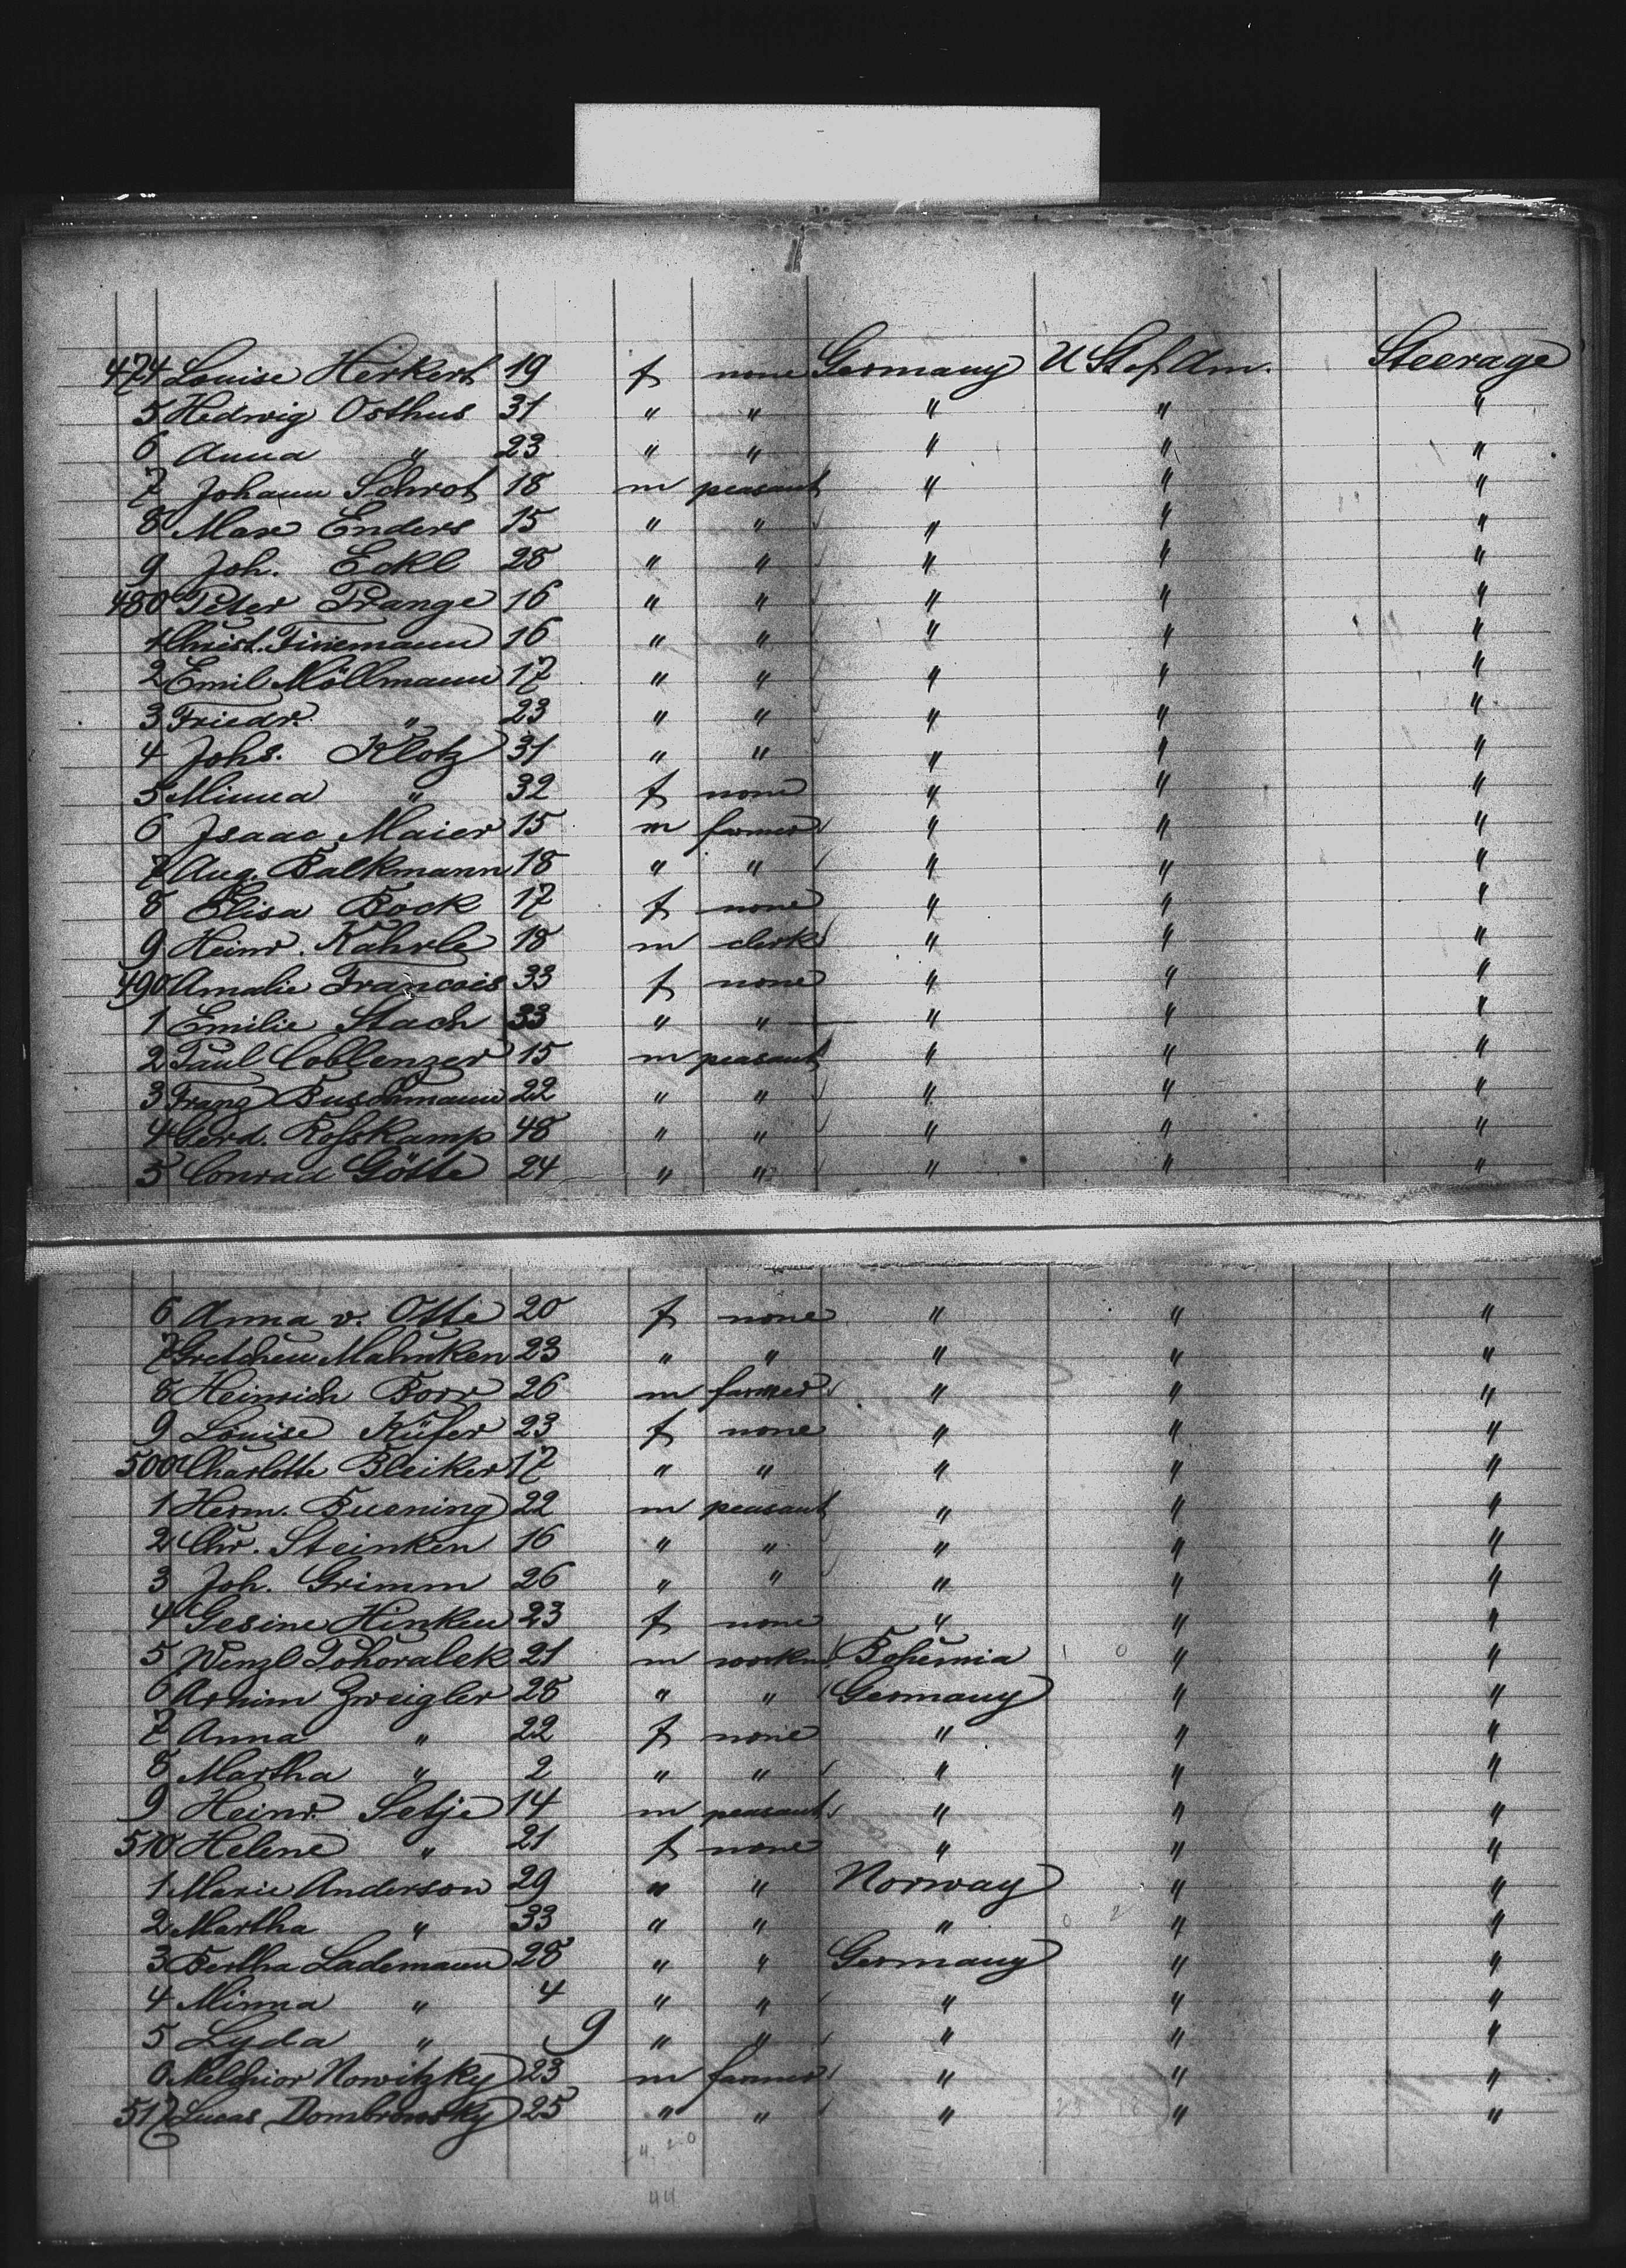 474 Louise Herkert 19 f none Germany U St of Am. Steerage
5 Hedwig Osthus 31 " " " " "
6 Anna " 23 " " " " "
7 Johann Schrot 18 m peasant " " "
8 Max Enders 15 " " " " "
9 Joh. Eckl 28 " " " " "
480 Peter Prange 16 " " " " "
1 Christ. Finemann 16 " " " " "
2 Emil Möllmann 17 " " " " "
3 Friedr. " 23 " " " " "
4 Johs. Klotz 31 " " " " "
5 Minna " 32 f none " " "
6 Isaac Maier 15 m farmer " " "
7 Aug. Balkmann 18 " " " " "
8 Elisa Bock 17 f none " " "
9 Heinr. Kahrle 18 m clerk " " "
490 Amalie Francois 33 f none " " "
1 Emilie Stach 33 " " " " "
2 Paul Coblenzer 15 m peasant " " "
3 Franz Buschmann 22 " " " " "
4 Gerd. Rosskamp 48 " " " " "
5 Conrad Götte 24 " " " " "
6 Anna v. Otte 20 f none " " "
7 Gretchen Mahnken 23 " " " " "
8 Heinrich Borr 26 m farmer " " "
9 Louise Küfer 23 f none " " "
500 Charlotte Bleiker 17 " " " " "
1 Herm. Buening 22 m peasant " " "
2 Chr. Steinken 16 " " " " "
3 Joh. Grimm 26 " " " " "
4 Gesine Hinken 23 f none " " "
5 Wenzl Pohoralek 21 m workm Bohemia " "
6 Armin Zweigler 28 " " Germany " "
7 Anna " 22 f none " " "
8 Martha " 2 " " " " "
9 Heinr. Setje 14 m peasant " " "
510 Helene " 21 f none " " "
1 Marie Anderson 29 " " Norway " "
2 Martha " 33 " " " " "
3 Bertha Lademann 28 " " Germany " "
4 Minna " 4 " " " " "
5 Lyda " 9 " " " " "
6 Melchior Nowitzky 23 m farmer " " "
517 Lucas Dombrowsky 25 " " " " "
44